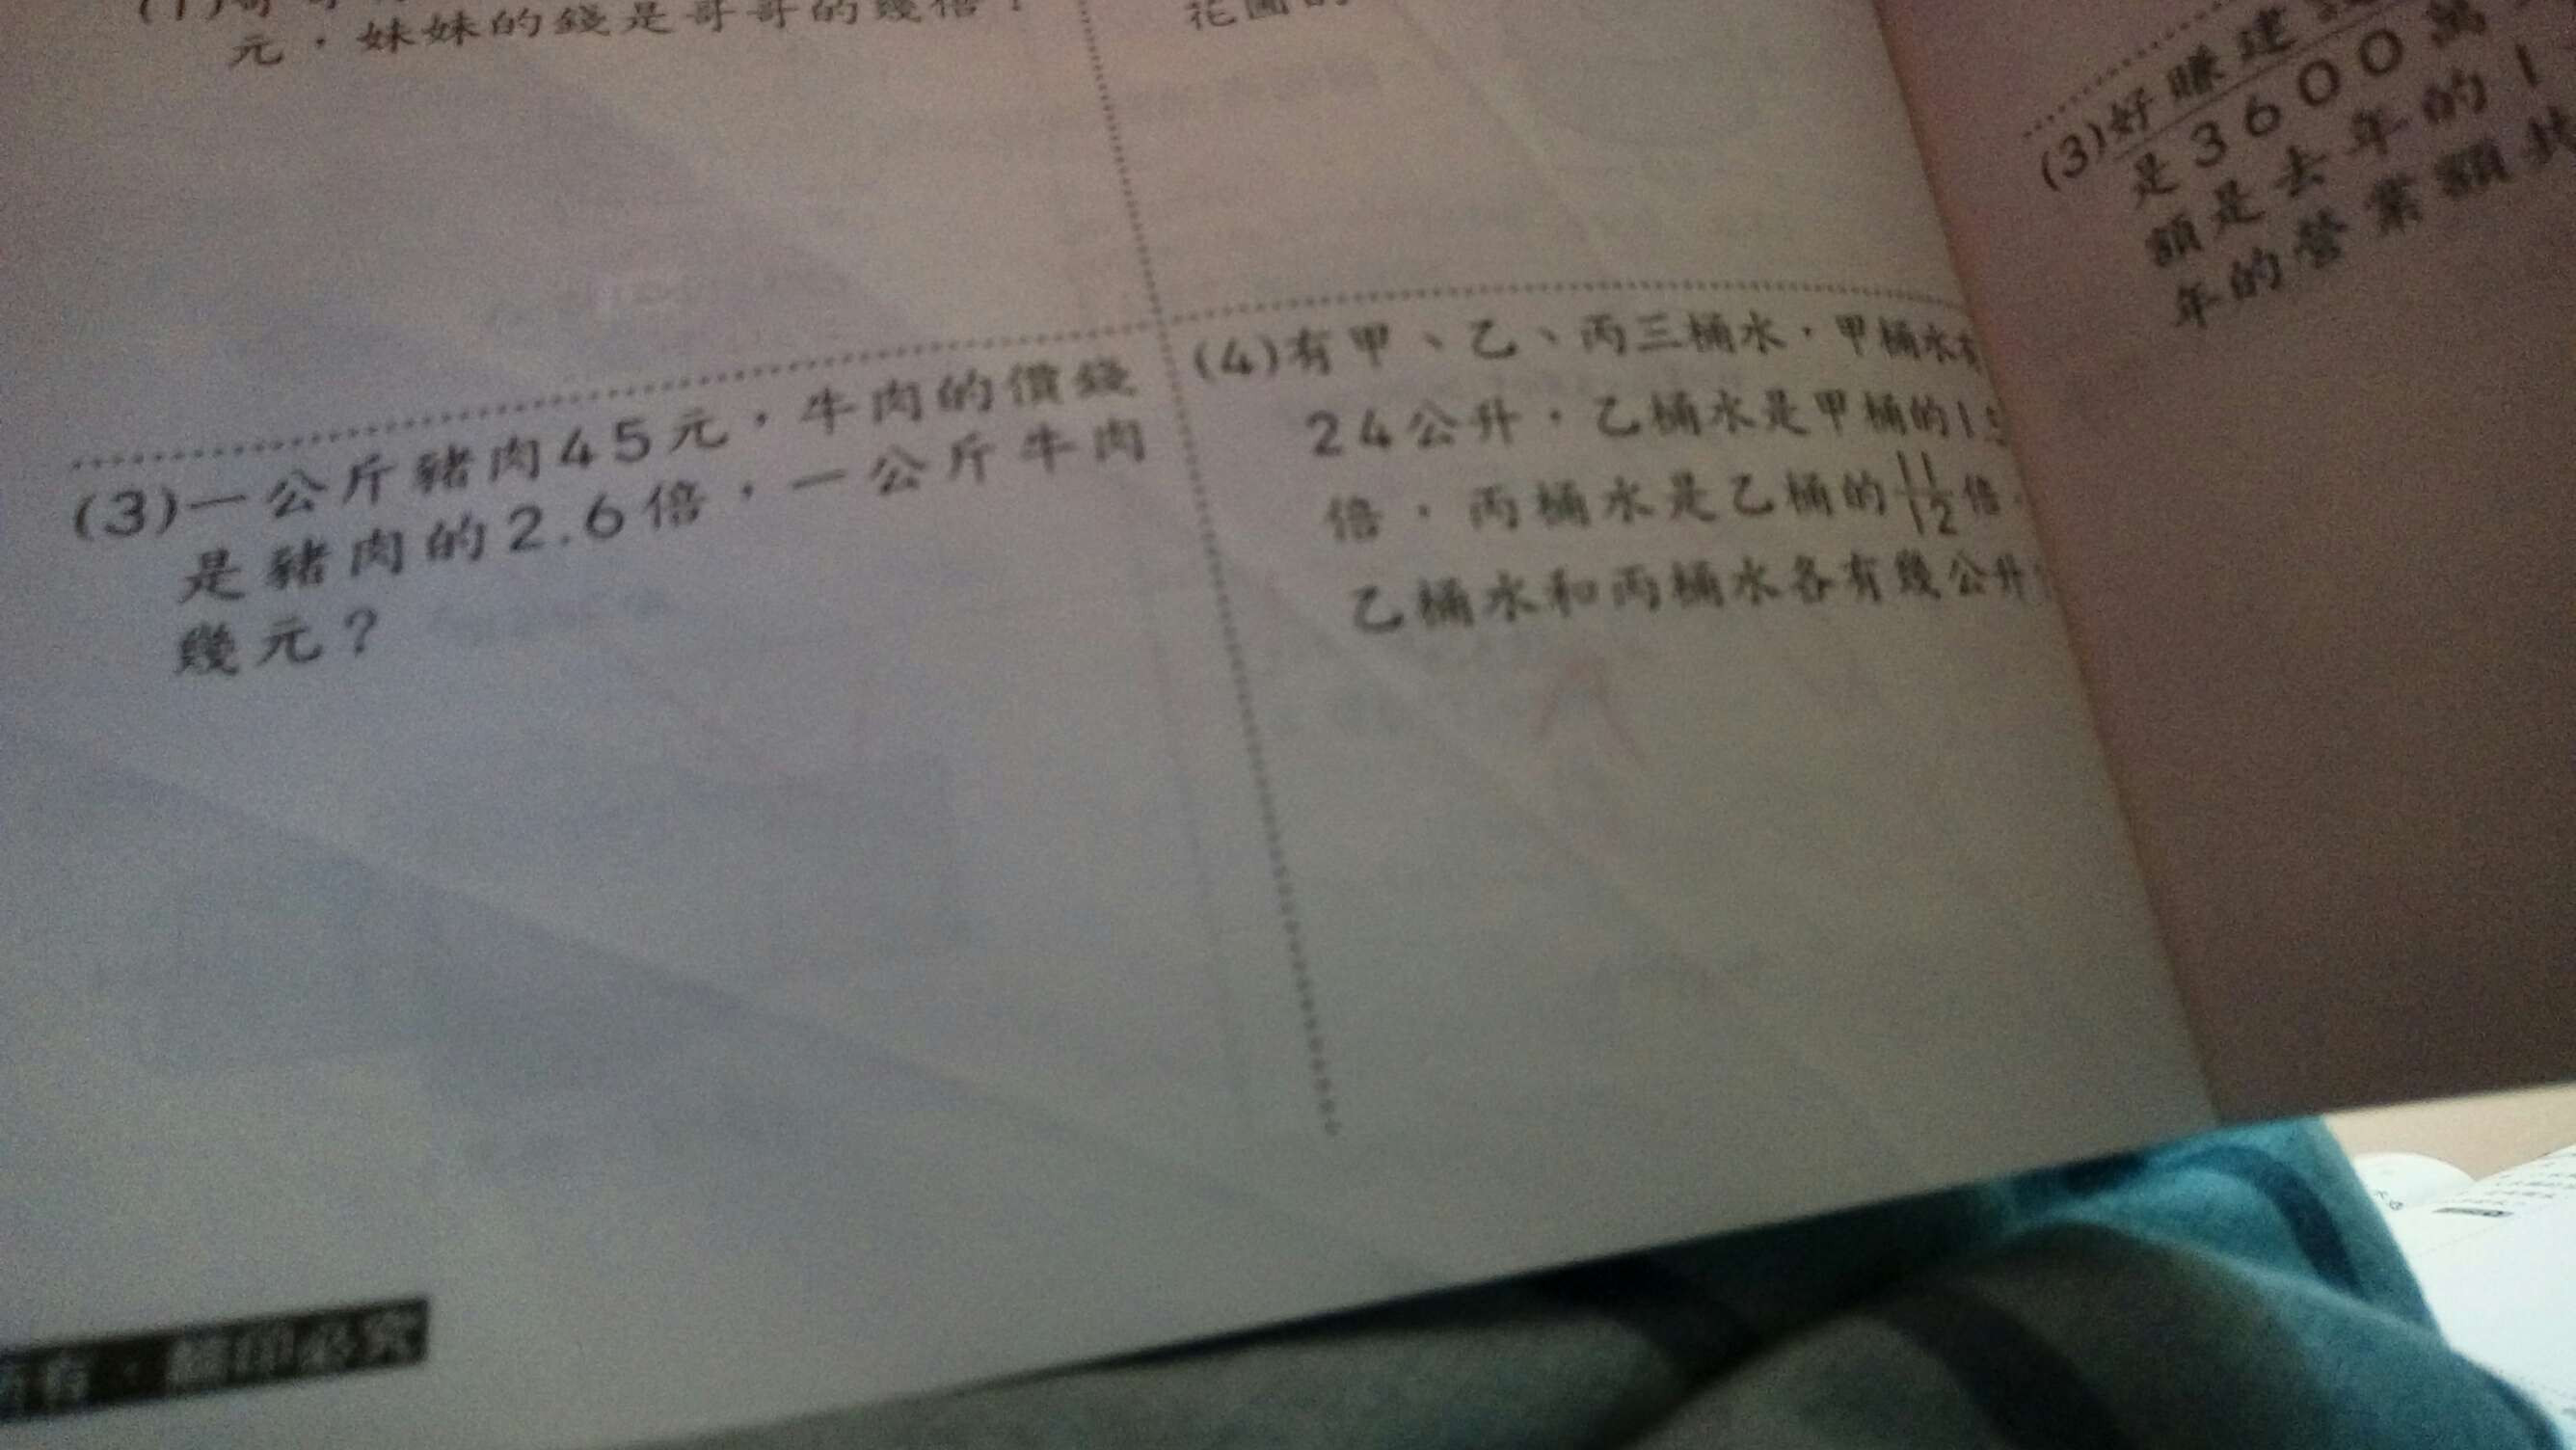 元，妹妹的錢是哥哥的幾倍？
(3)一公斤豬肉45元，牛肉的價錢
是豬肉的2.6倍，一公斤牛肉
幾元？
(4)有甲、乙、丙三桶水，甲桶水有
24公升，乙桶水是甲桶的1
倍，丙桶水是乙桶的
倍，
乙桶水和丙桶水各有幾公升
(3)好賺建
是3600萬
額是去年的1
年的營業額
有．翻印必究